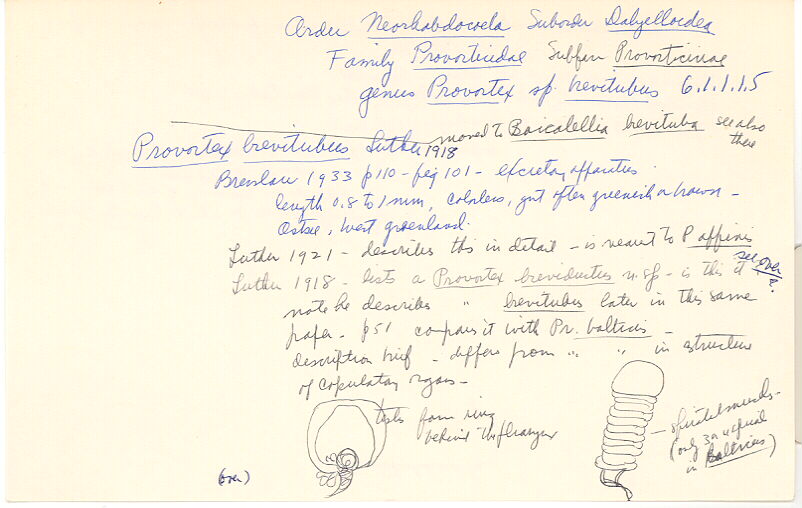 Order Neorhabdocoela Suborder Dalyelloidea
Family Provorticidae Subfam Provorticinae
genus Provortex sp. brevitubus 6.1.1.1.5
moved to Baicalellia brevituba see also
there
Provortex brevitubus Luther 1918
Bresslau 1933 p110 - fig 101 - excretory apparatus
length 0.8 to 1 mm, colorless, gut often greenish or brown -
Ostsee, West greenland.
Luther 1921 - describes this in detail - is nearest to P affinis
see over
Luther 1918 - lists a Provortex breviductus n. sp - is this it?
note he describes " brevitubus later in this same
paper - p51 compares it with Pr. balticus -
description brief - differs from " " in structure
of copulatory organs -
testes form ring
behind the pharynx
spiral muscle -
(only 3 or 4 spiral
in Balticus)
(over)